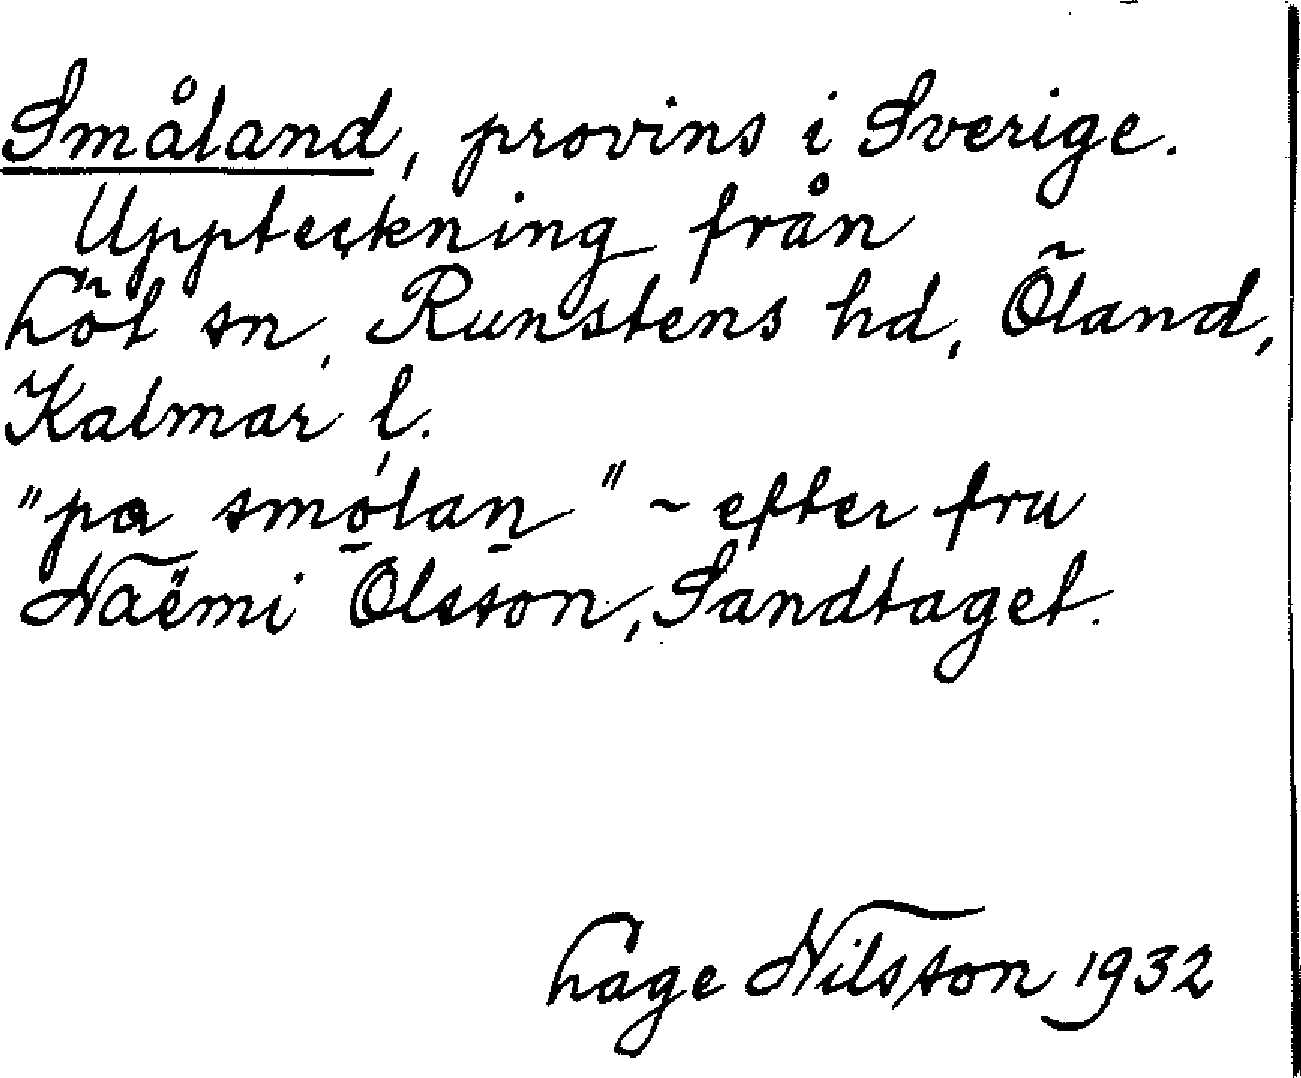 Småland, provins i Sverige.
Uppteckning från
Löt sn, Runstens hd, Öland,
Kalmar l.
"pa smólan" ~ efter fru
Naëmi Olsson, Sandtaget.
Lage Nilsson 1932